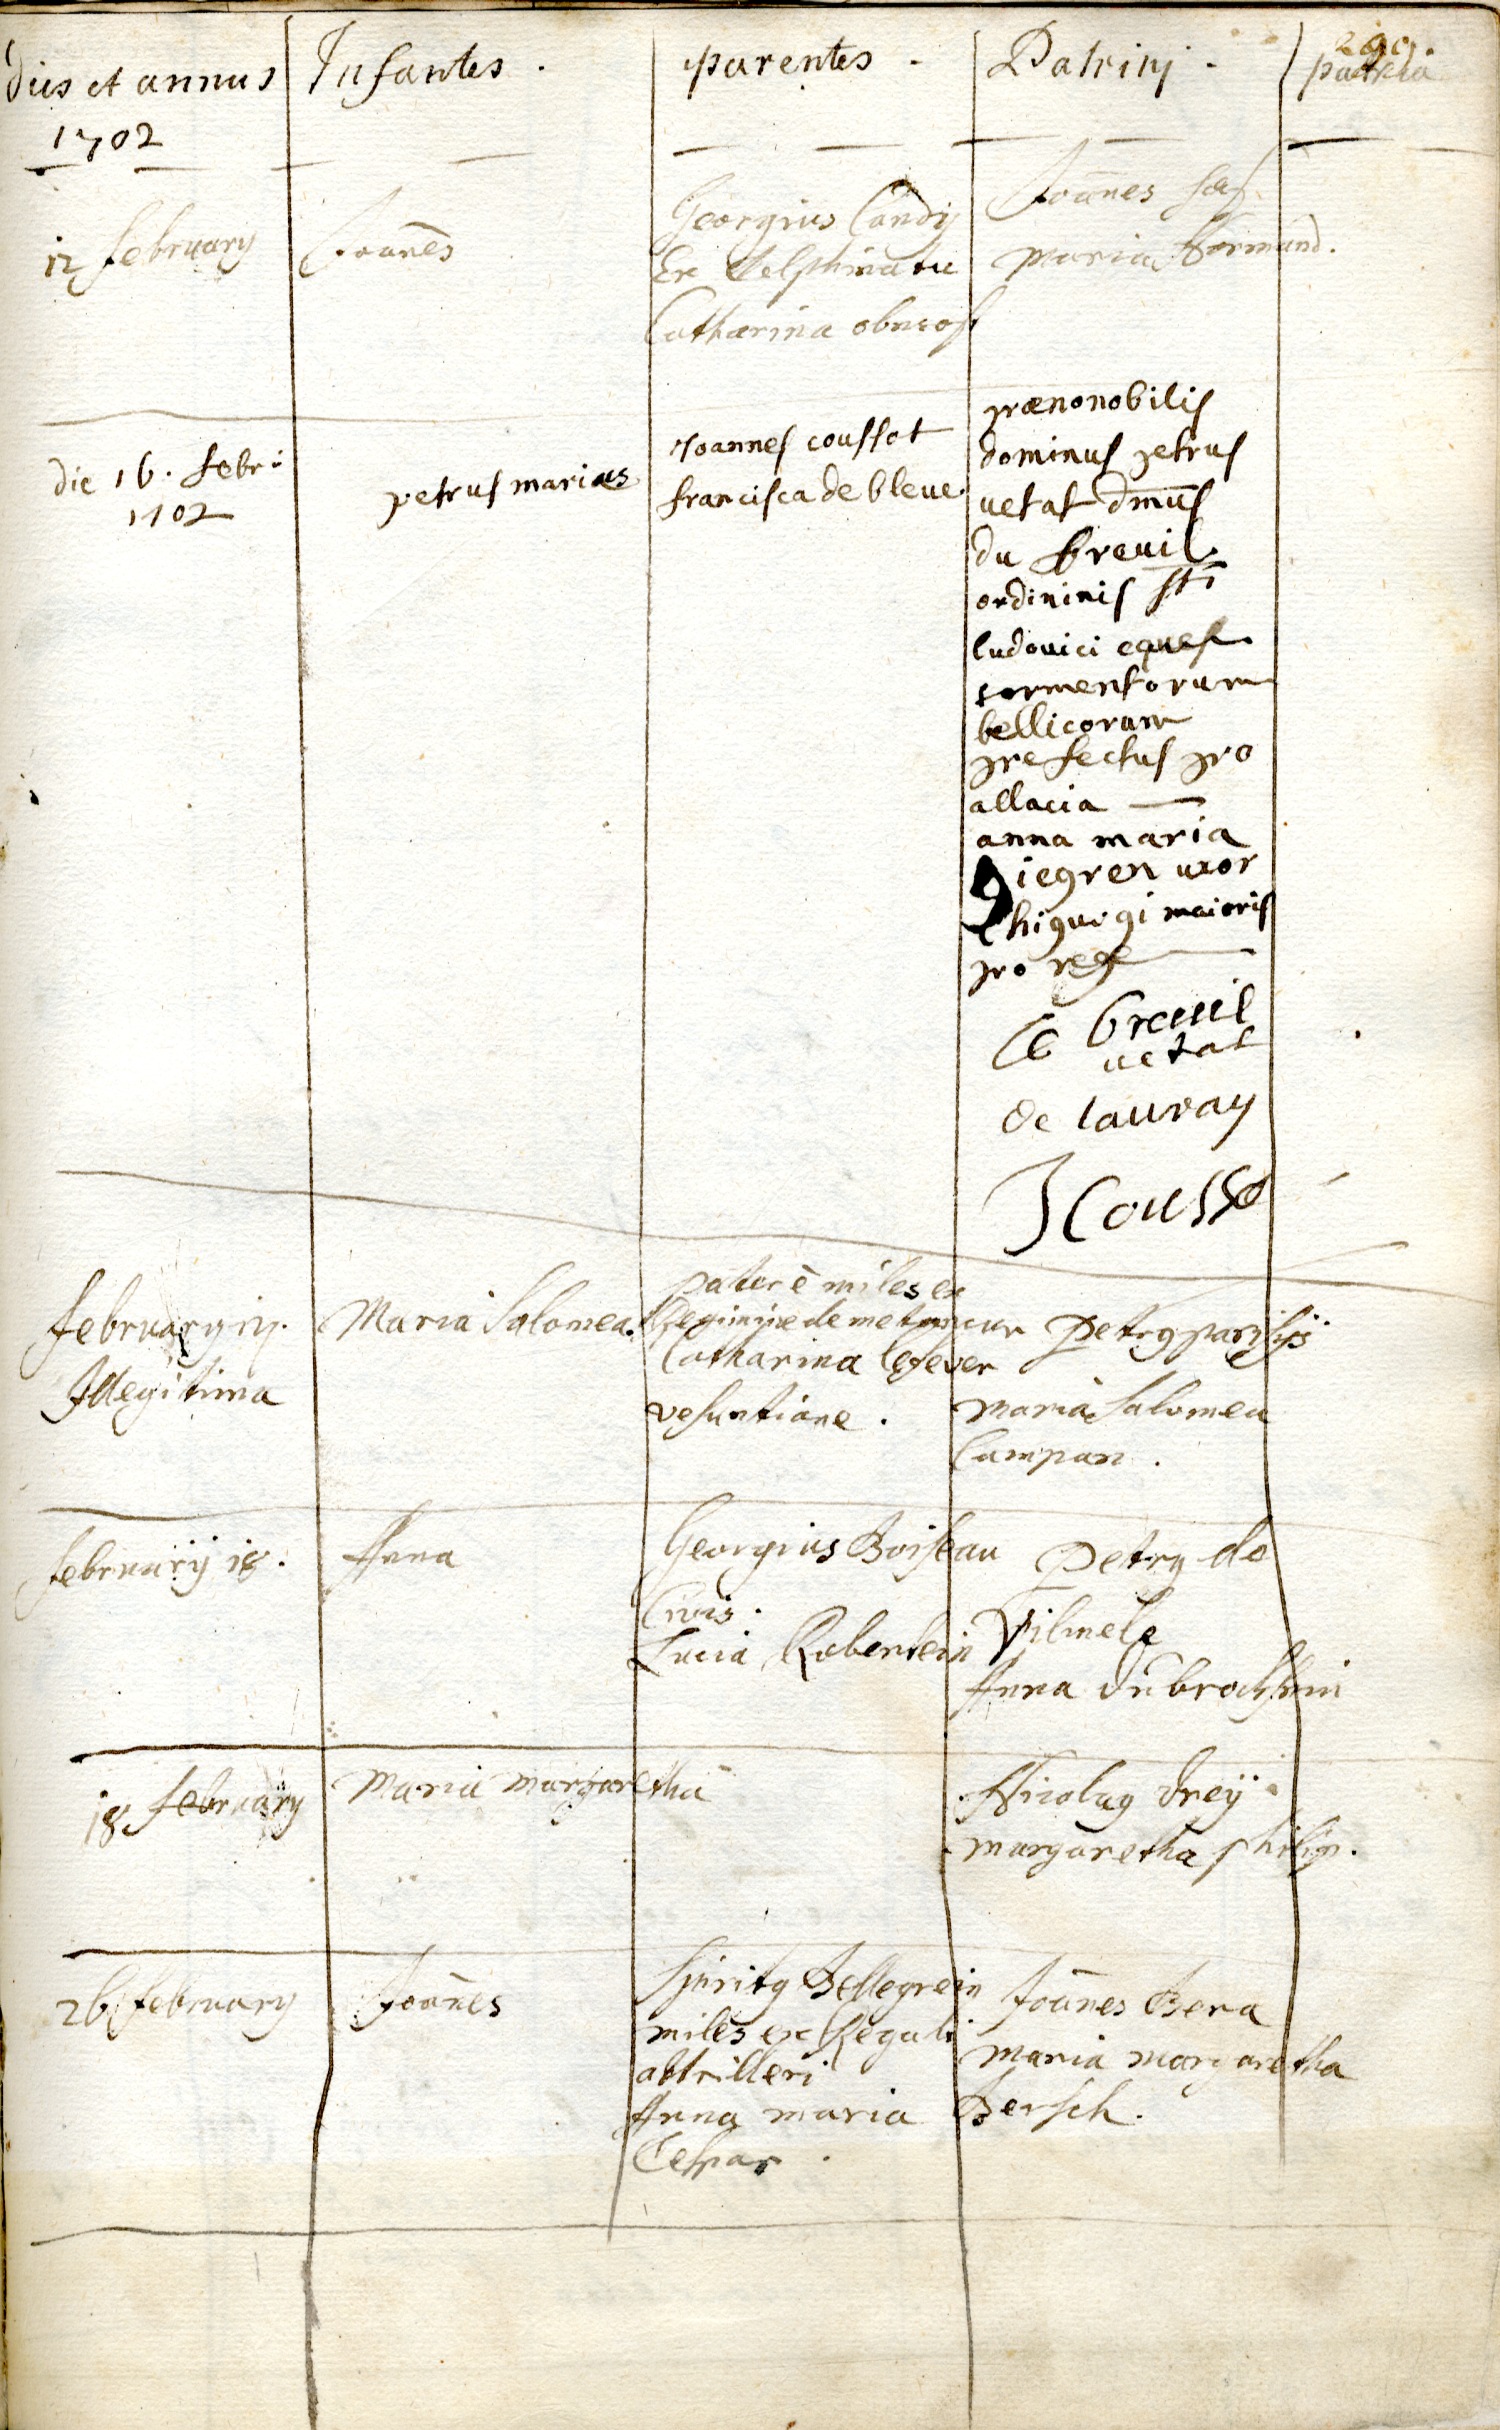 290.
dies et annus Infantes. parentes. Patrinj. patria
1702
12 february Joanēs Georgius Candij Joānes
Ex Delphinatu maria Normand.
Catharina
die 16. febr: 1702
petrus marius
Joannes coussot
francisca de bleue
prænonobilis
dominus petrus
vetat dm̄us
du breuil
ordininis sti
ludovici eques
tormentorum
bellicorum
prefectus pro
allacia —
anna maria
giegren uxor
maioris
pro rege —
le breuil
vetat
de lauray
J Cousso
february 17.
Illegitima
Maria Salomea.
pater ē miles ex
Catharina lefever
vesuntiane.
Petrg parisijs
maria Salomea
Campan.
february 18.
Anna
Georgius Boiseau
Civis.
Lucia Robertein
Petrg de
Vilmele
Anna
18 february Maria margaretha
Nicolag drey
margaretha philip.
26 february
Joānes
Spiritg Bellegrein
miles ex Regali
abtrilleri
Anna maria
Cespar.
Joānes Bera
maria margaretha
Bersch.